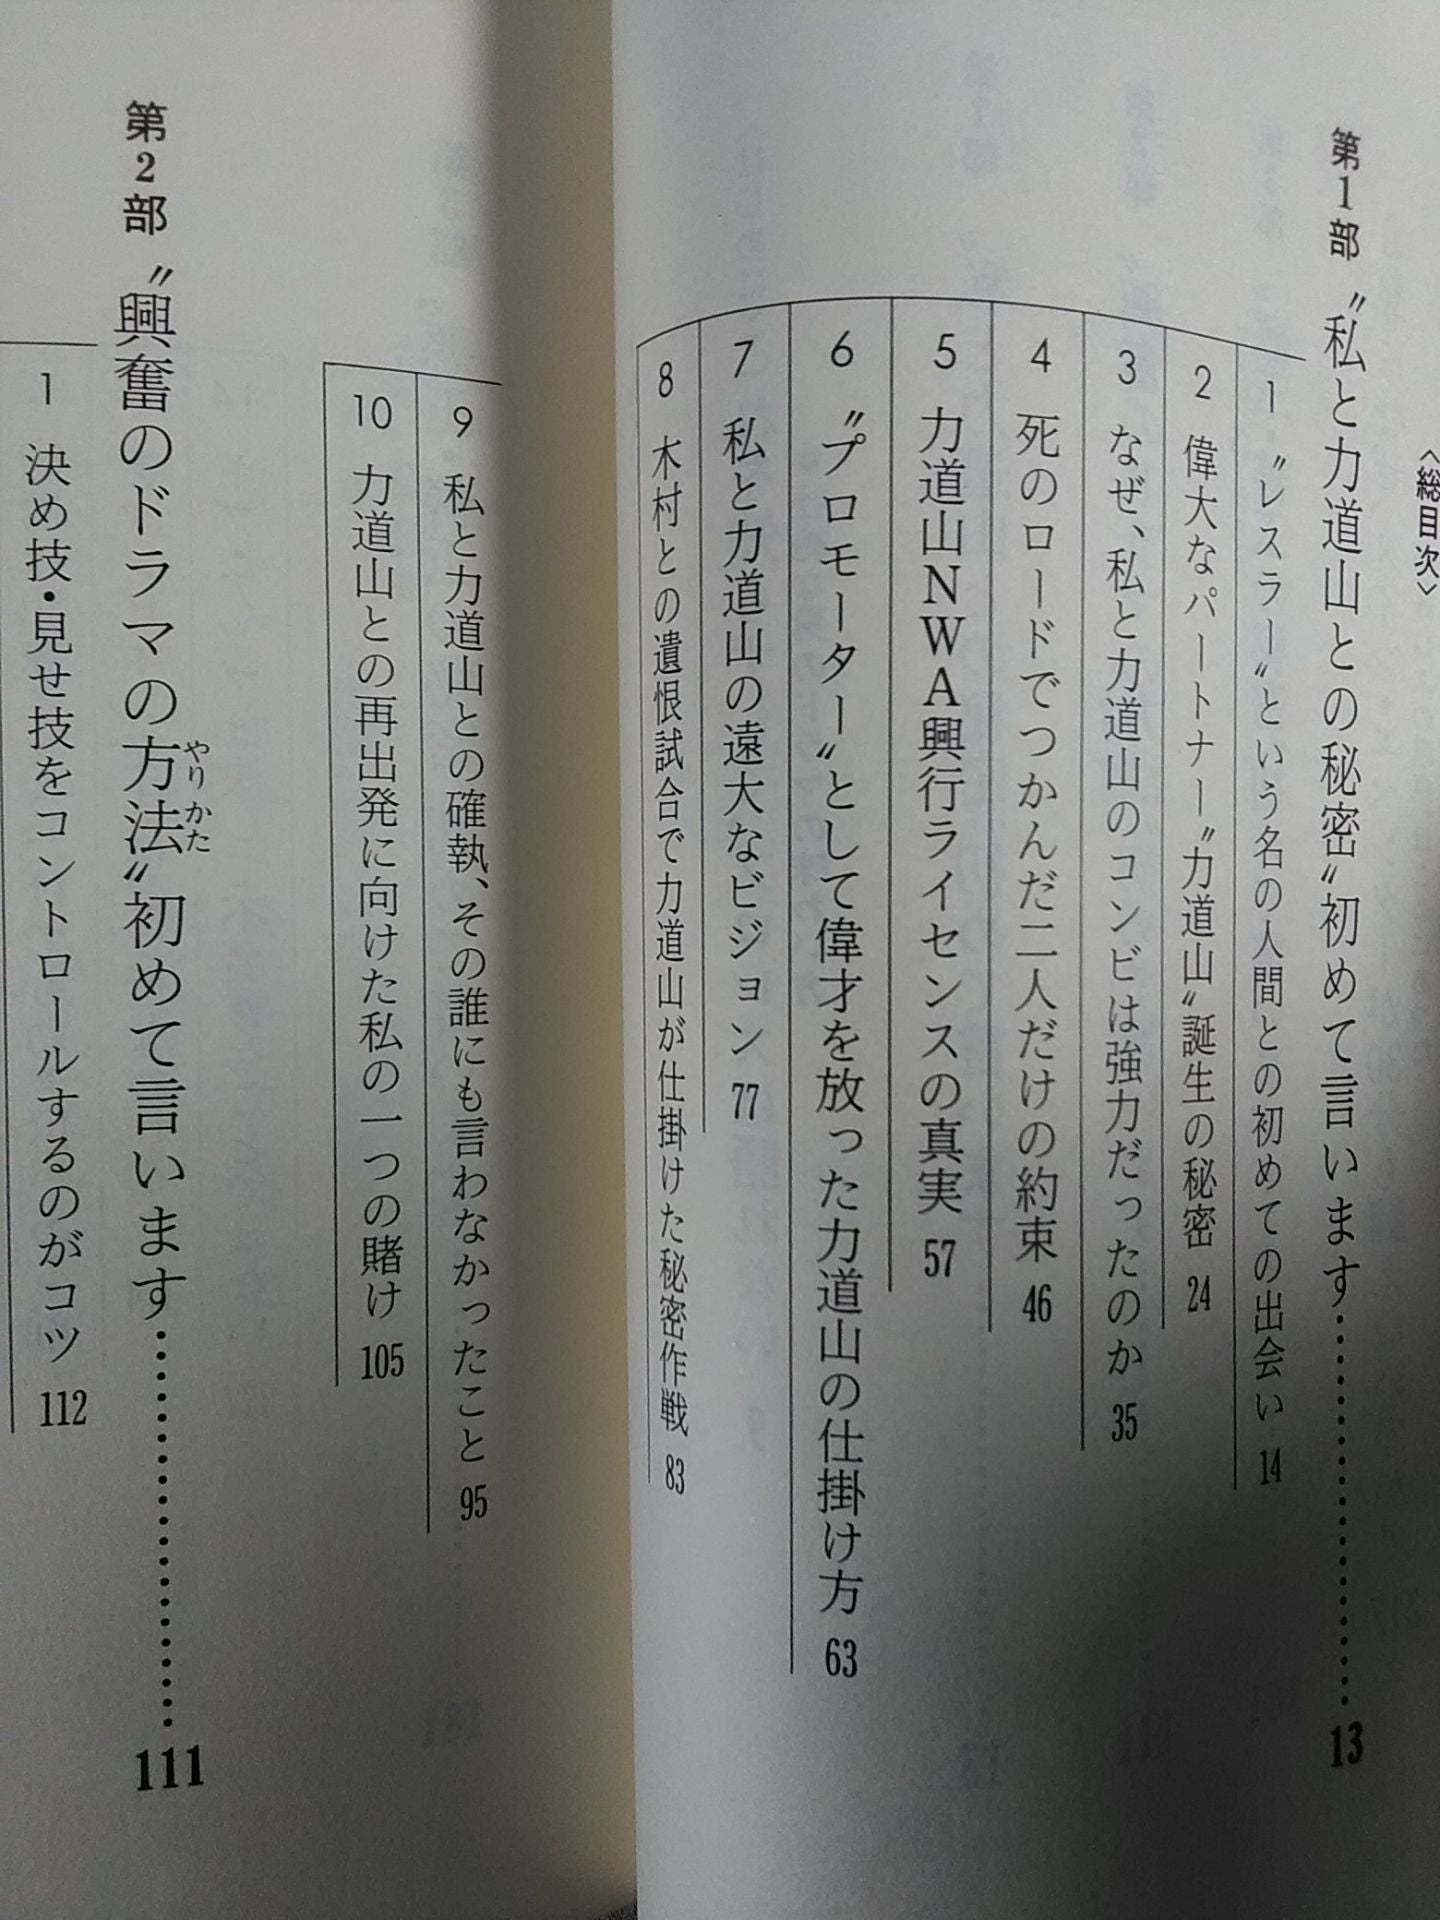 〈総目次〉
第1部 〝私と力道山との秘密〟初めて言います……………………13
1 〝レスラー〟という名の人間との初めての出会い 14
2 偉大なパートナー〝力道山〟誕生の秘密 24
3 なぜ、私と力道山のコンビは強力だったのか 35
4 死のロードでつかんだ二人だけの約束 46
5 力道山NWA興行ライセンスの真実 57
6 〝プロモーター〟として偉才を放った力道山の仕掛け方 63
7 私と力道山の遠大なビジョン 77
8 木村との遺恨試合で力道山が仕掛けた秘密作戦 83
9 私と力道山との確執、その誰にも言わなかったこと 95
10 力道山との再出発に向けた私の一つの賭け 105
第2部 〝興奮のドラマの方法〟初めて言います……………………111
やりかた
1 決め技・見せ技をコントロールするのがコツ 112